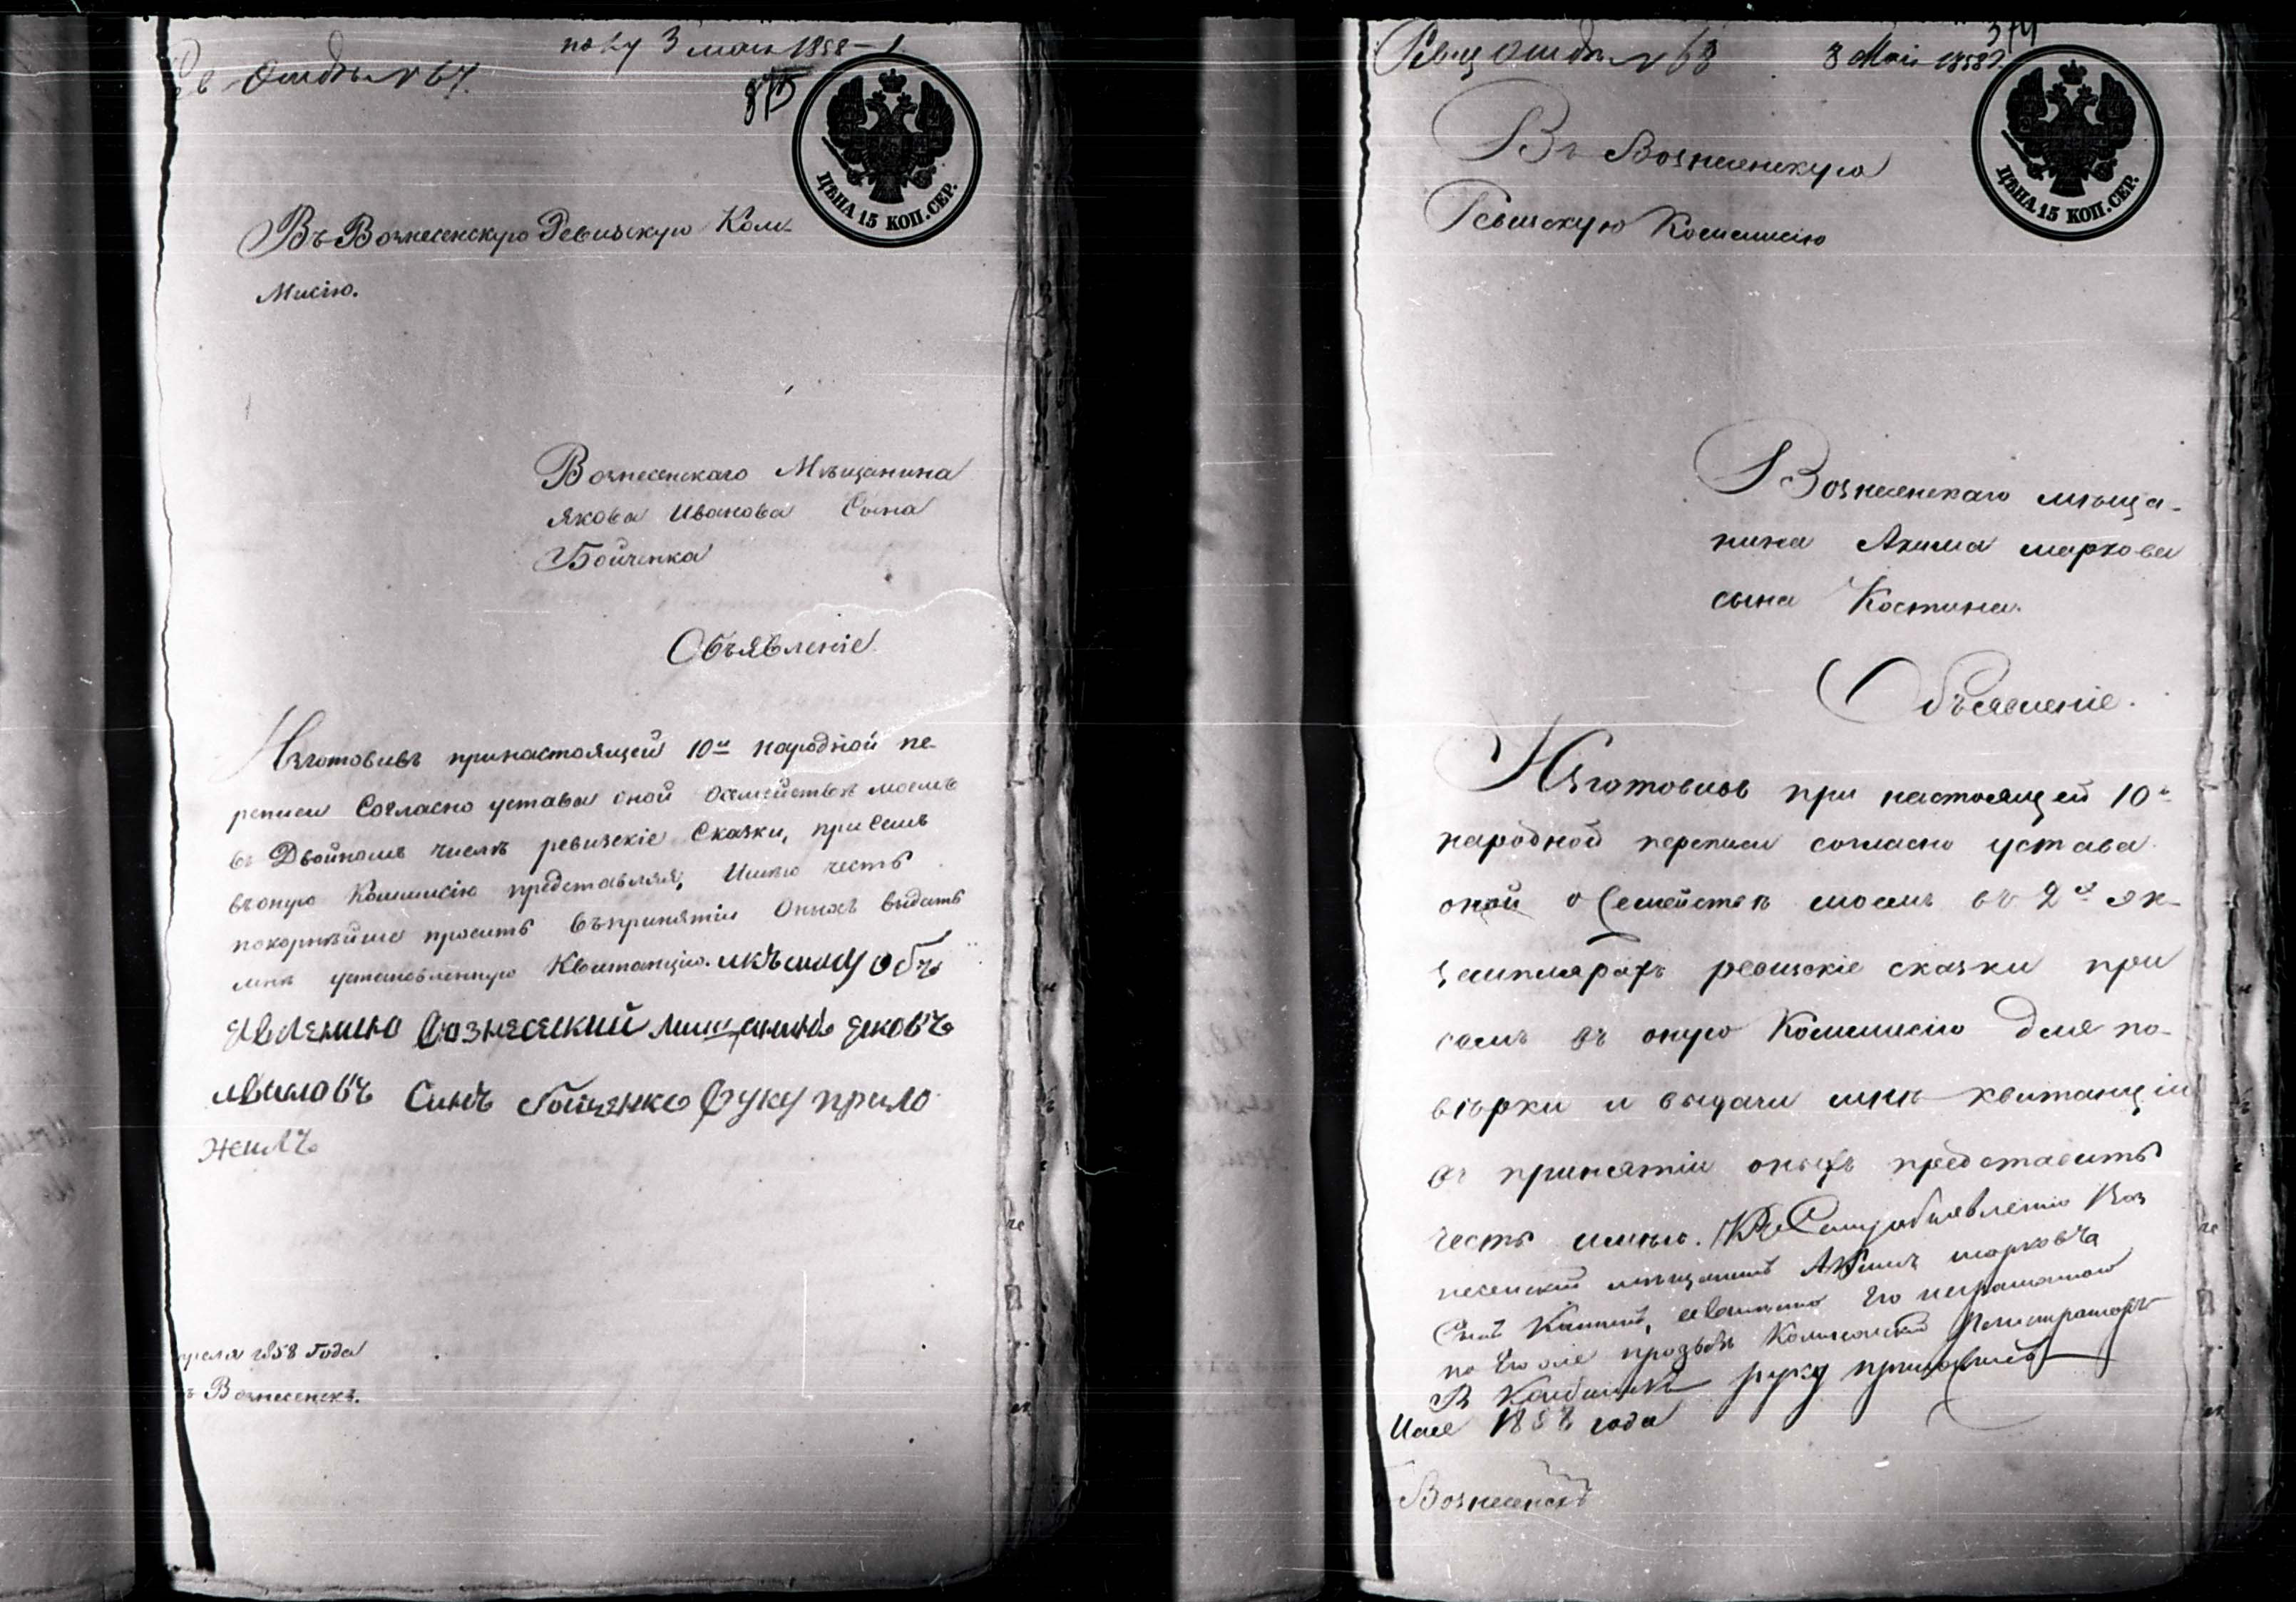 полу 3 мая 1858 – 1
Отдѣл № 64.
375
ЦѢНА 15 КОП. СЕР.
Въ Вознесенскую Ревизскую Ком-
Мисію.
Вознесенскаго Мѣщанина
Якова Иванова Сына
Бойченка
Объявленіе
Изготовивъ принастоящей 10й народной пе-
реписи Согласно устава оной осемействѣ моемъ
въ Двойномъ числѣ ревизскіе Сказки, при семъ
въоную Коммисію представляя, Имѣю честь
покорнѣйше просить въпринятіи Оныхъ выдать
мнѣ установленную Квитанцію. икъсиму объ
явлению Вознесенский Якавъ
Ивановъ Синъ Бойченко Руку прило
жилъ
преля 1858 Года
ъ Вознесенскъ.
Отдѣл № 63 3 Мая 1858
374
ЦѢНА 15 КОП. СЕР.
Въ Вознесенскую
Ревизскую Коммисію
Вознесенскаго мѣща-
нина Акима маркова
сына Костина.
Объявленіе.
Изготовивъ при настоящей 10й
народной переписи согласно устава
оной о Семействѣ моемъ въ 2х эк-
земплярахъ ревизскіе сказки при
семъ въ оную Коммисію для по-
вѣрки и выдачи мнѣ квитанціи
въ принятіи оныхъ представить
честь имѣю. Къ Сему объявленію Воз
несенский мѣщанинъ Акимъ марковъ
Сынъ Костинъ, Его неграмотной
по Его прозьбѣ Регистраторъ
руку приложилъ
Мая 1858 года
Вознесенскъ